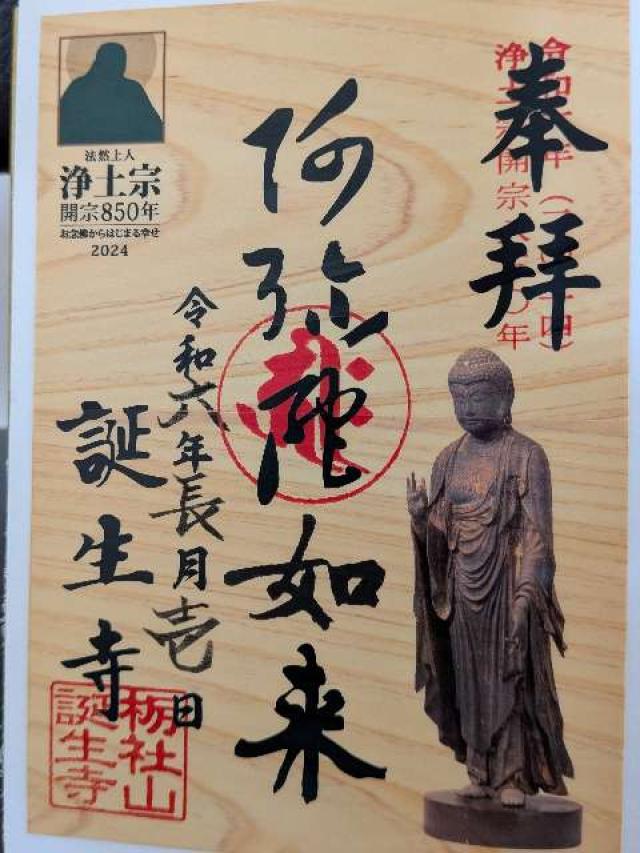 奉拝
令和六年(二〇二四)
浄土宗開宗八五〇年
阿弥陀如来
令和六年長月壱日
誕生寺
栃社山
誕生寺
法然上人
浄土宗
開宗850年
お念佛からはじまる幸せ
2024